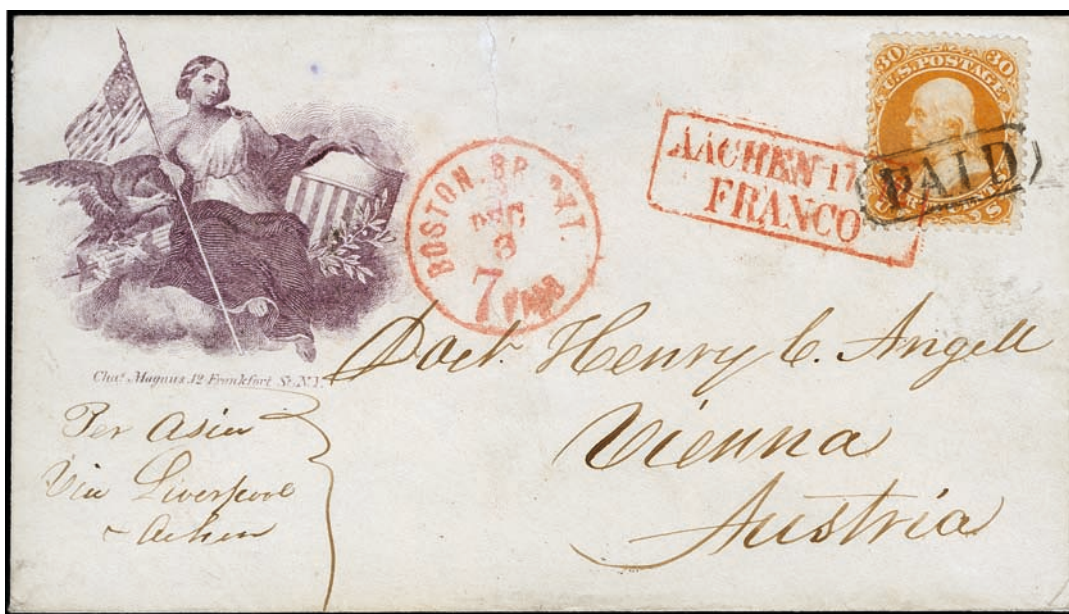 30 U.S. POSTAGE 30
PAID
AACHEN 17
FRANCO
BOSTON. BR. PKT.
DEC
3
7 PAID
Chas. Magnus 12 Frankfort St. N.Y.
Doct. Henry C. Angell
Vienna
Austria
Per Asia
Via Liverpool
& Achen